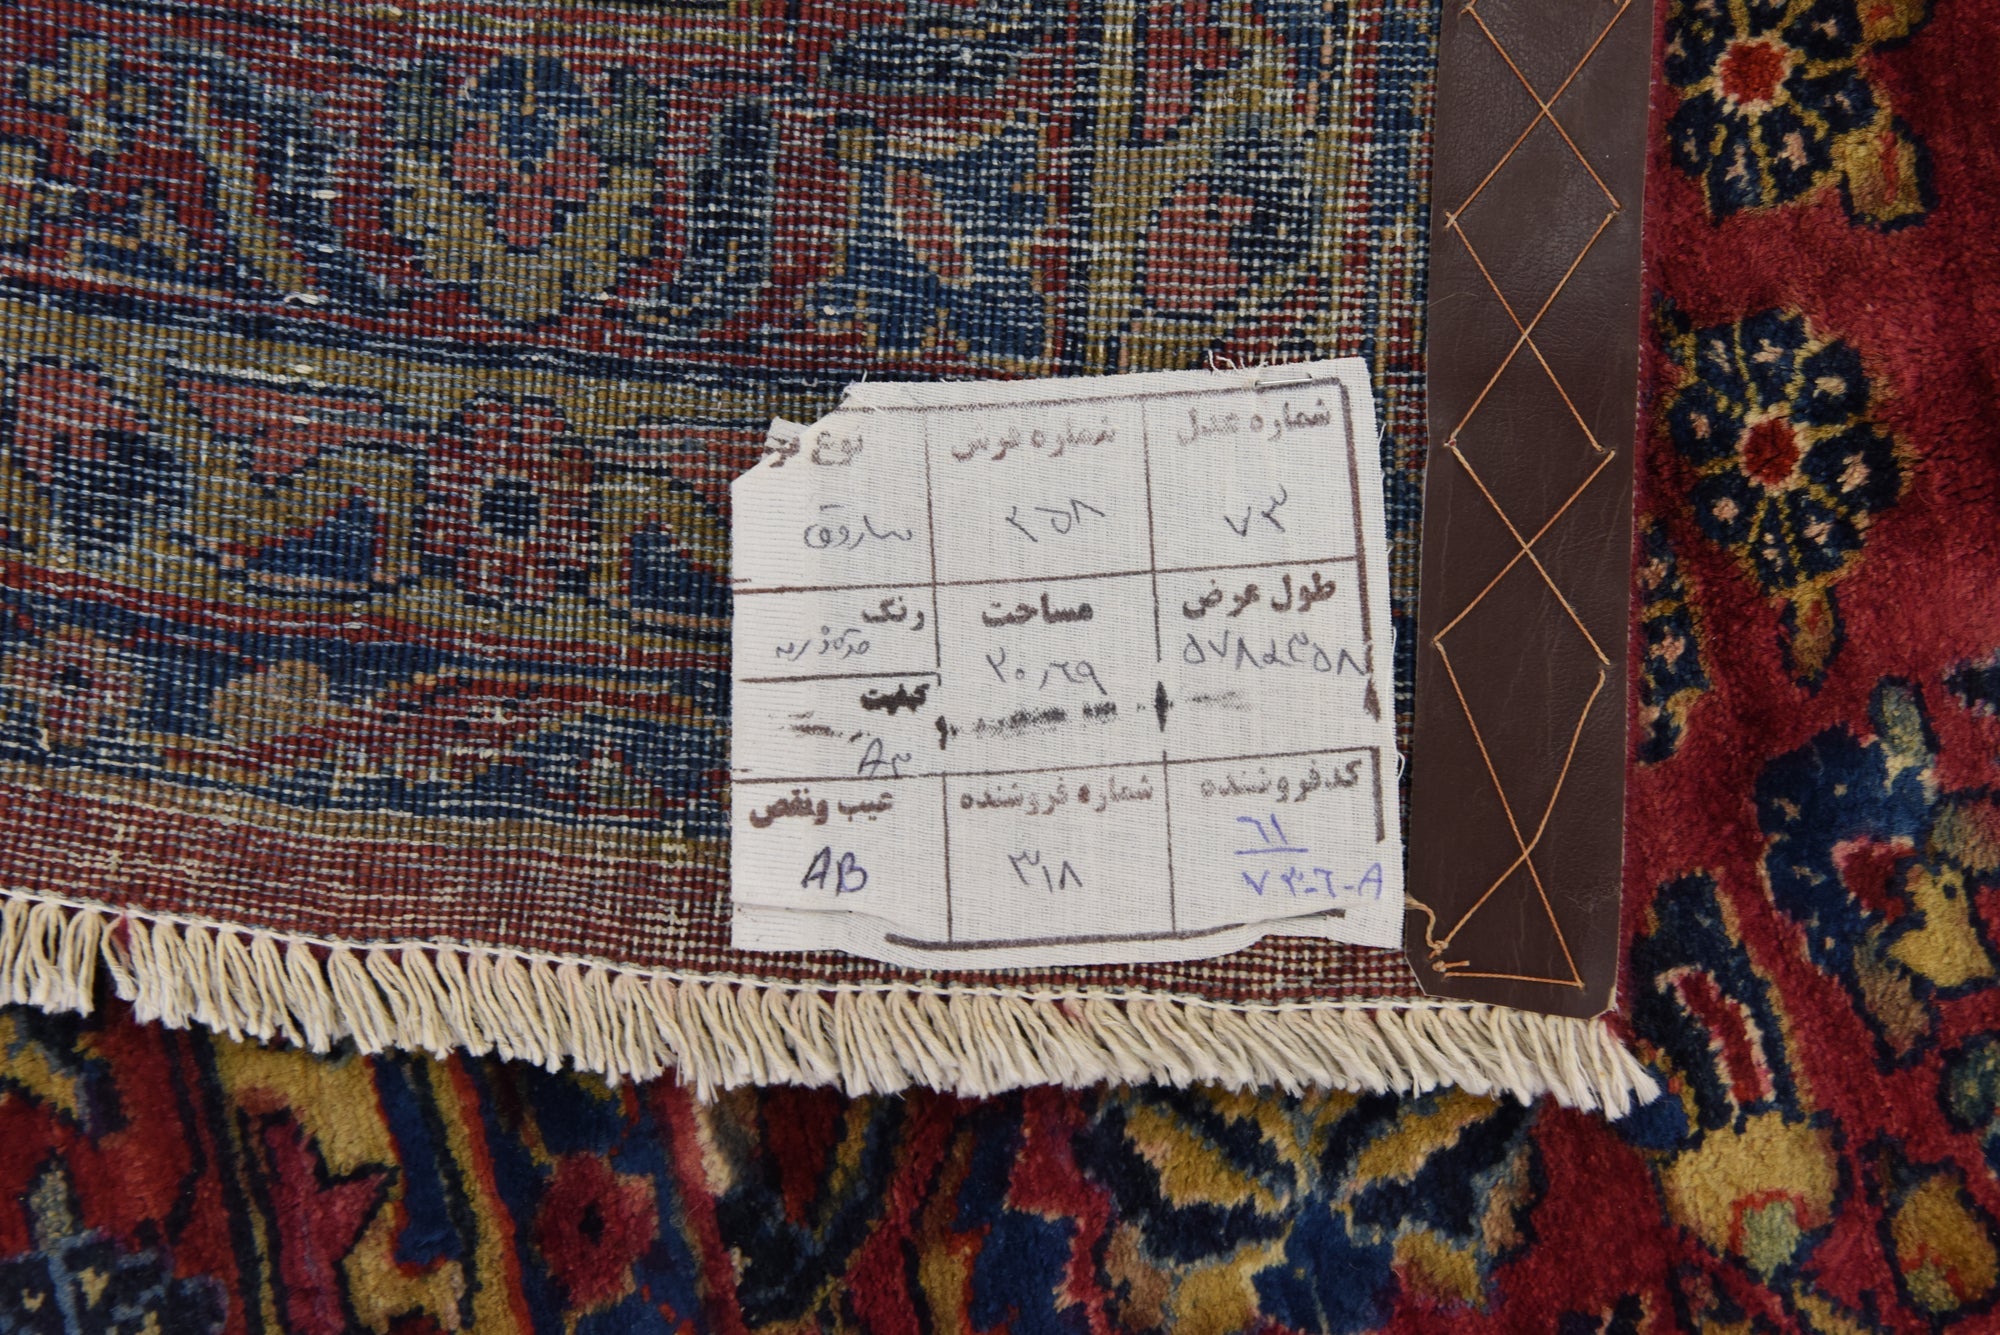 شماره عدل شماره فرش نوع
۷۳ ۲۵۸ ساروق
طول عرض مساحت رنگ
۵۷۸ ۳۵۸ ۲۰٫۶۹
کیفیت
A۳
کد فروشنده شماره فروشنده عیب و نقص
۶۱ ۳۱۸ AB
۷۳-۶-A